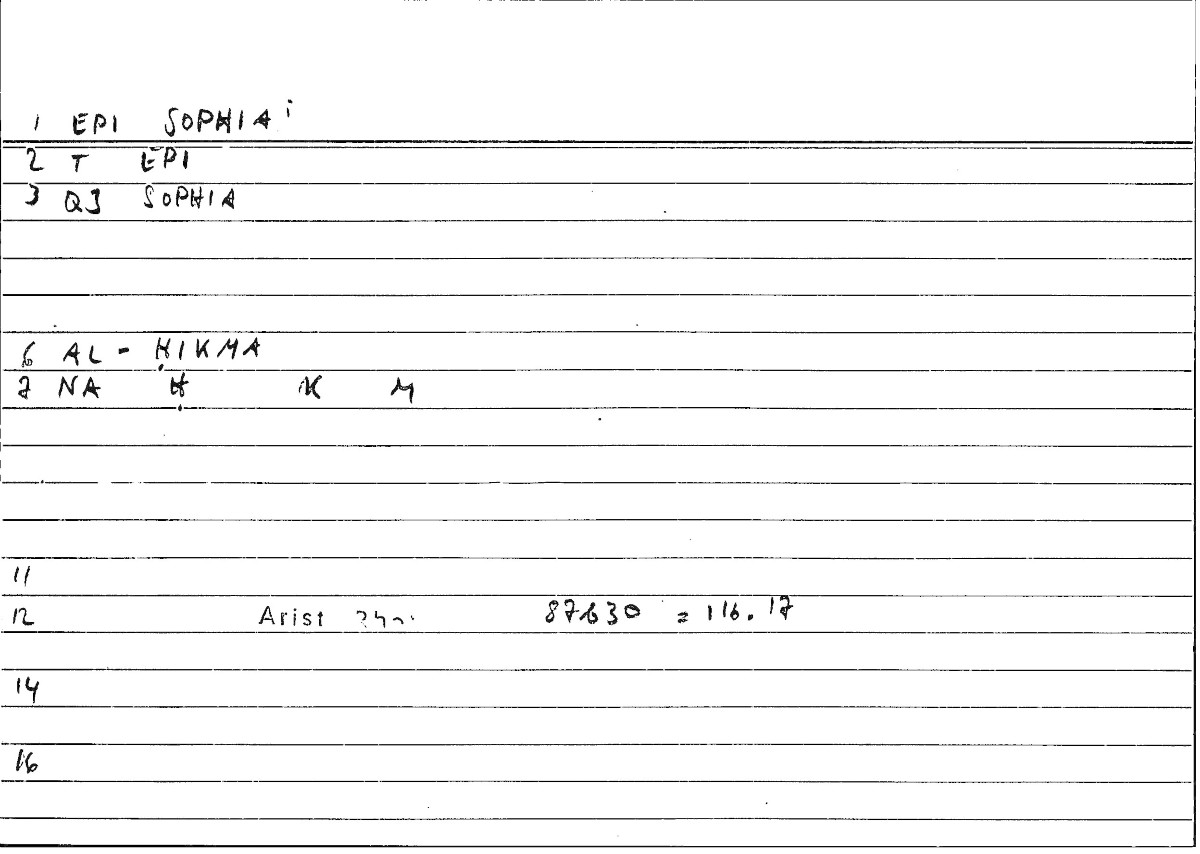 1 EPI SOPHIA i
2 T EPI
3 QJ SOPHIA
6 AL - ḤIKMA
7 NA Ḥ K M
11
12 Arist 87630 = 116.17
14
16